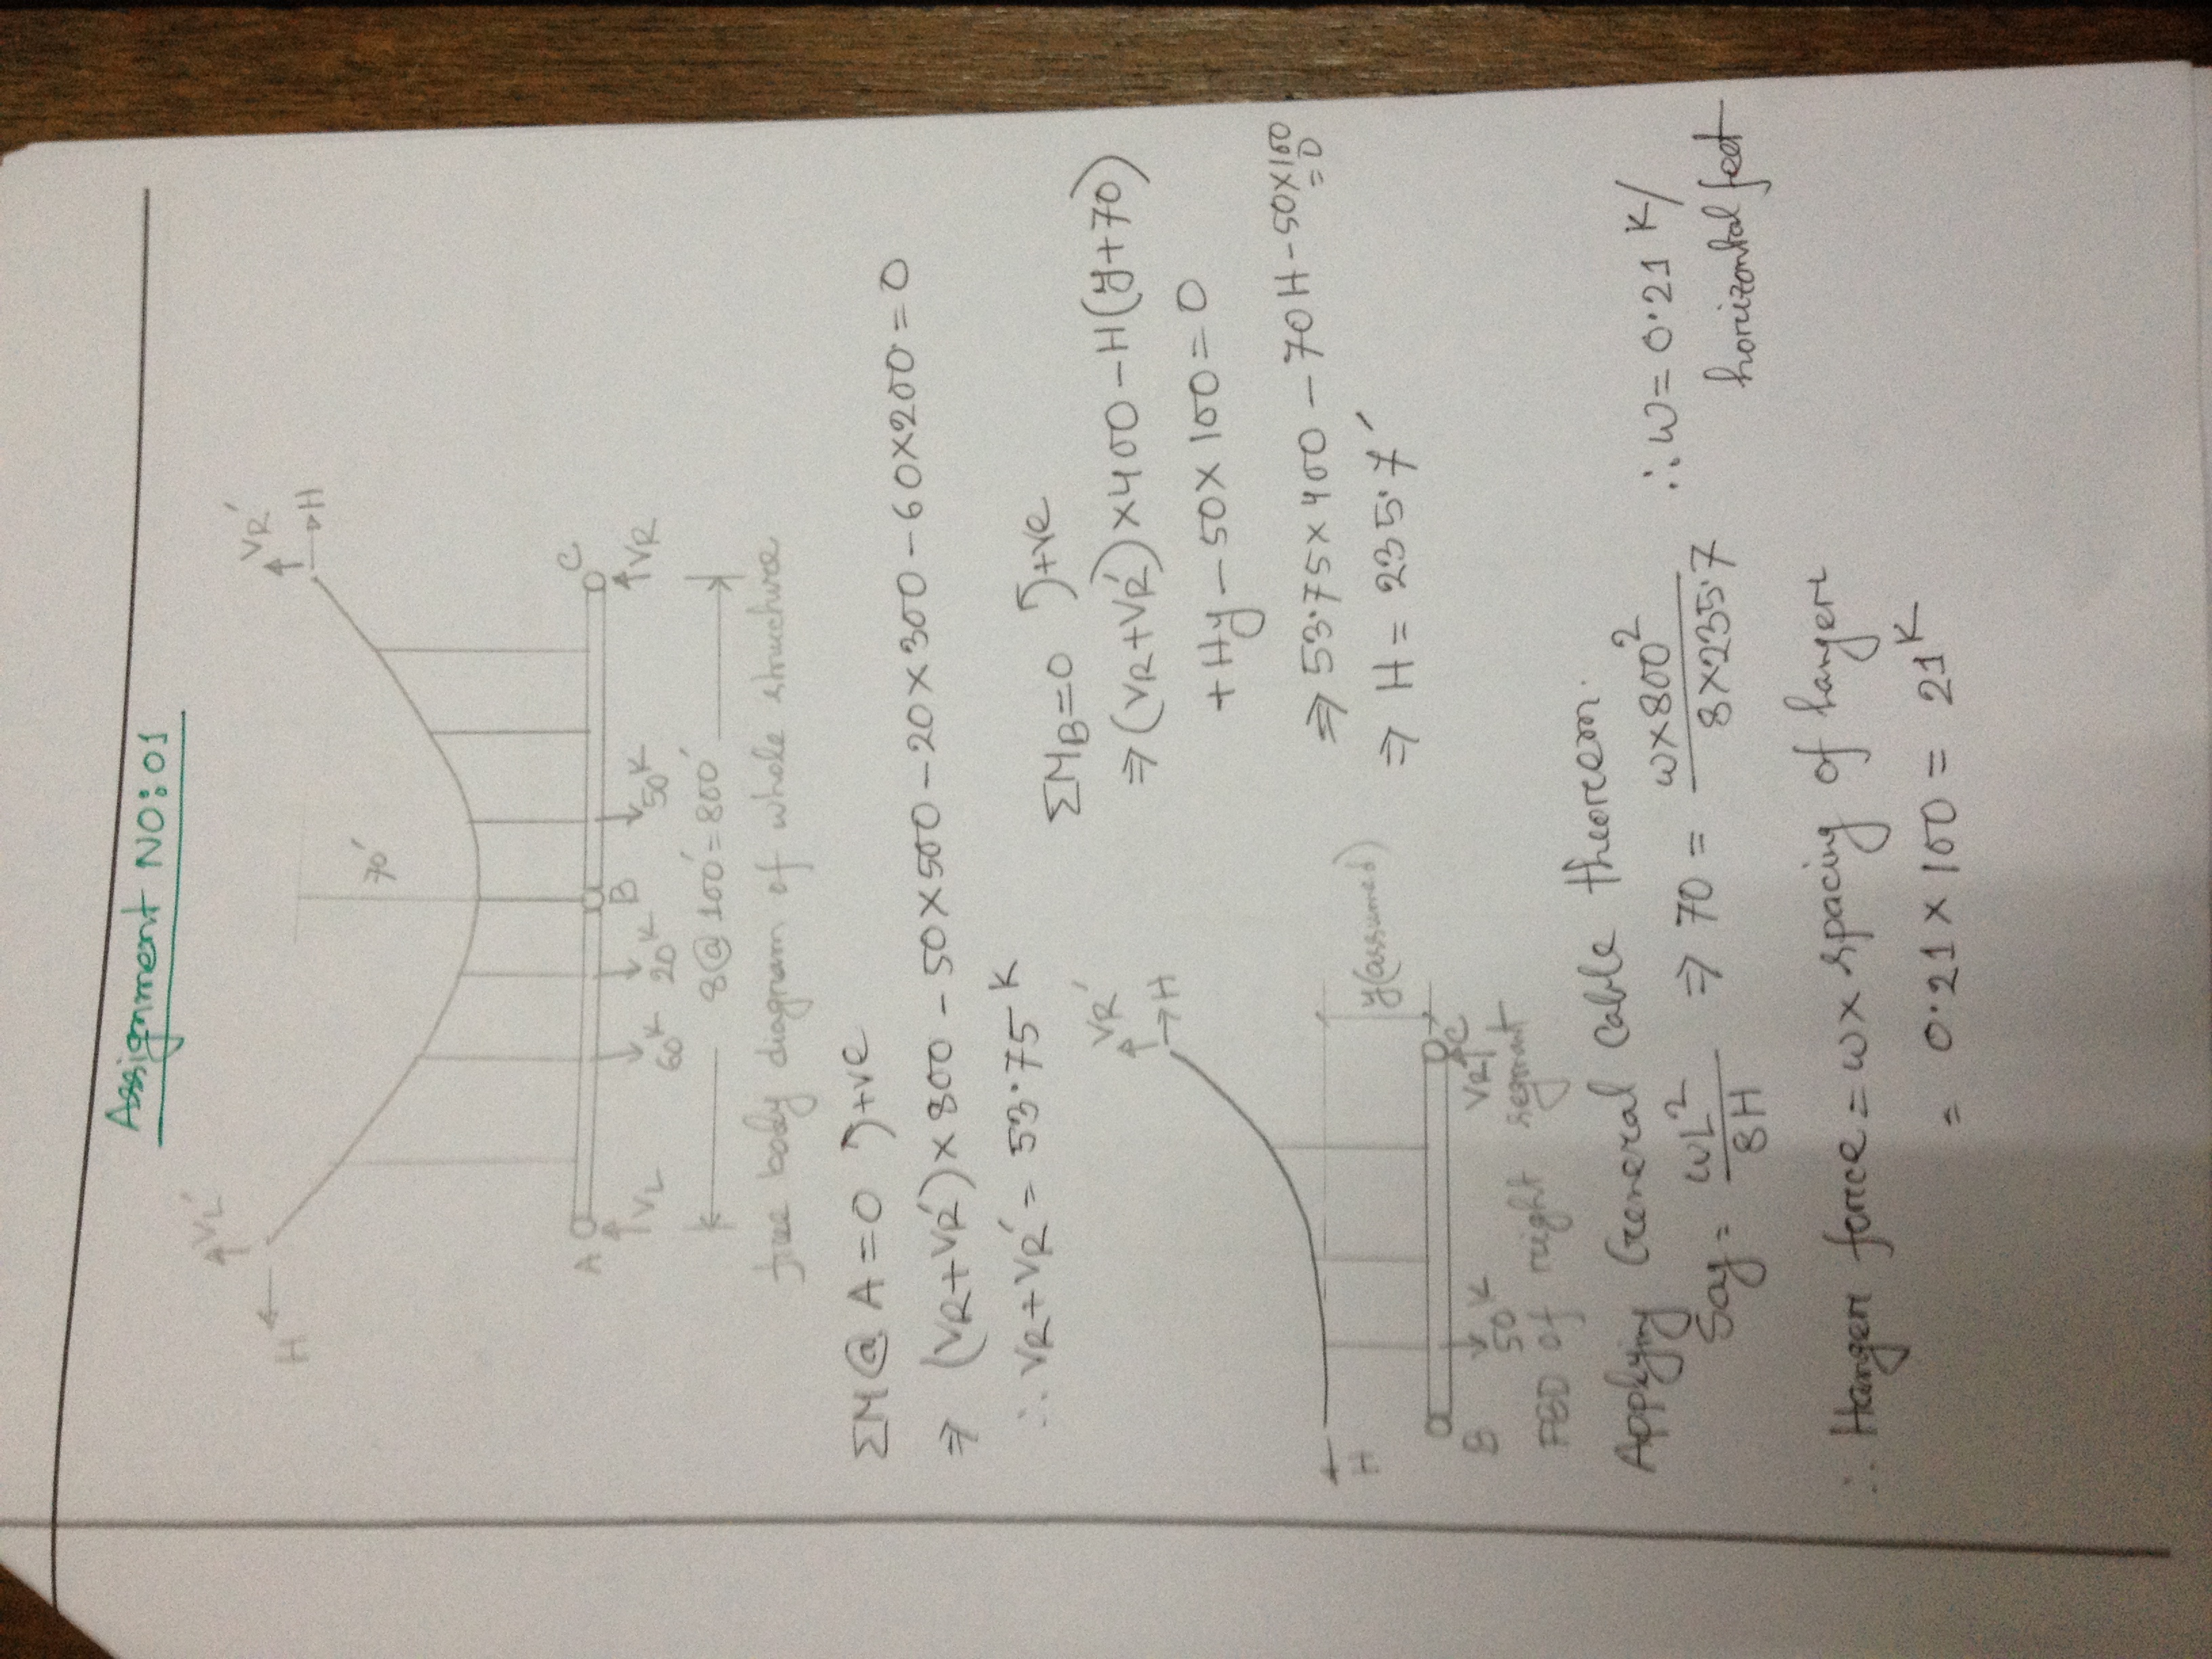 Assignment NO:01
VL' VR'
H H
70'
A B C
VL 60K 20K 50K VR
8@100'=800'
free body diagram of whole structure
ΣM@A=0 +ve
⇒ (VR+VR')×800-50×500-20×300-60×200=0
∴ VR+VR' = 53.75 K
VR'
H
H
y(assumed)
B 50K VR C
FBD of right segment
ΣMB=0 +ve
⇒ (VR+VR')×400-H(y+70)
+Hy-50×100=0
⇒ 53.75×400-70H-50×100
=0
⇒ H = 235.7'
Applying General Cable theorem.
Say = wL²/8H ⇒ 70 = w×800²/8×235.7 ∴ w = 0.21 K/
horizontal feet
∴ Hanger force = w × spacing of hanger
= 0.21 × 100 = 21K